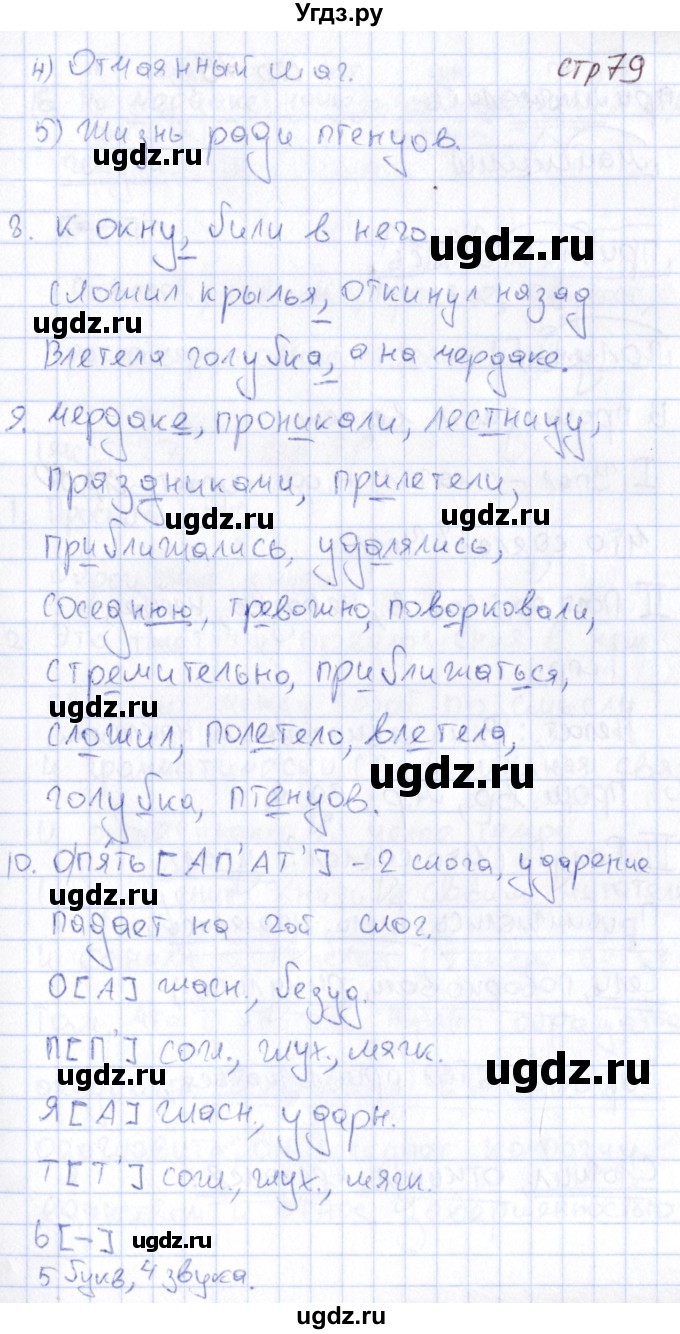 Угдз.ру
4) Отчаянный шаг. стр 79
5) Жизнь ради птенцов.
ugdz.ru
8. К окну, били в него
ugdz.ru
сложил крылья, откинул назад
ugdz.ru
Влетела голубка, а на чердаке.
9. чердаке, проникали, лестницу,
праздниками, прилетели,
ugdz.ru ugdz.ru
приближались, удалялись,
соседнюю, тревожно, поворковали,
стремительно, приближаться,
ugdz.ru
сложил, полетело, влетела,
ugdz.ru
голубка, птенцов.
10. Опять [АП'АТ'] - 2 слога, ударение
падает на 2ой слог.
ugdz.ru
О[А] гласн., безуд.
П[П'] согл., глух., мягк.
ugdz.ru ugdz.ru
Я[А] гласн., ударн.
Т[Т'] согл., глух., мягк.
ь[-] ugdz.ru
5 букв, 4 звука.
ugdz.ru